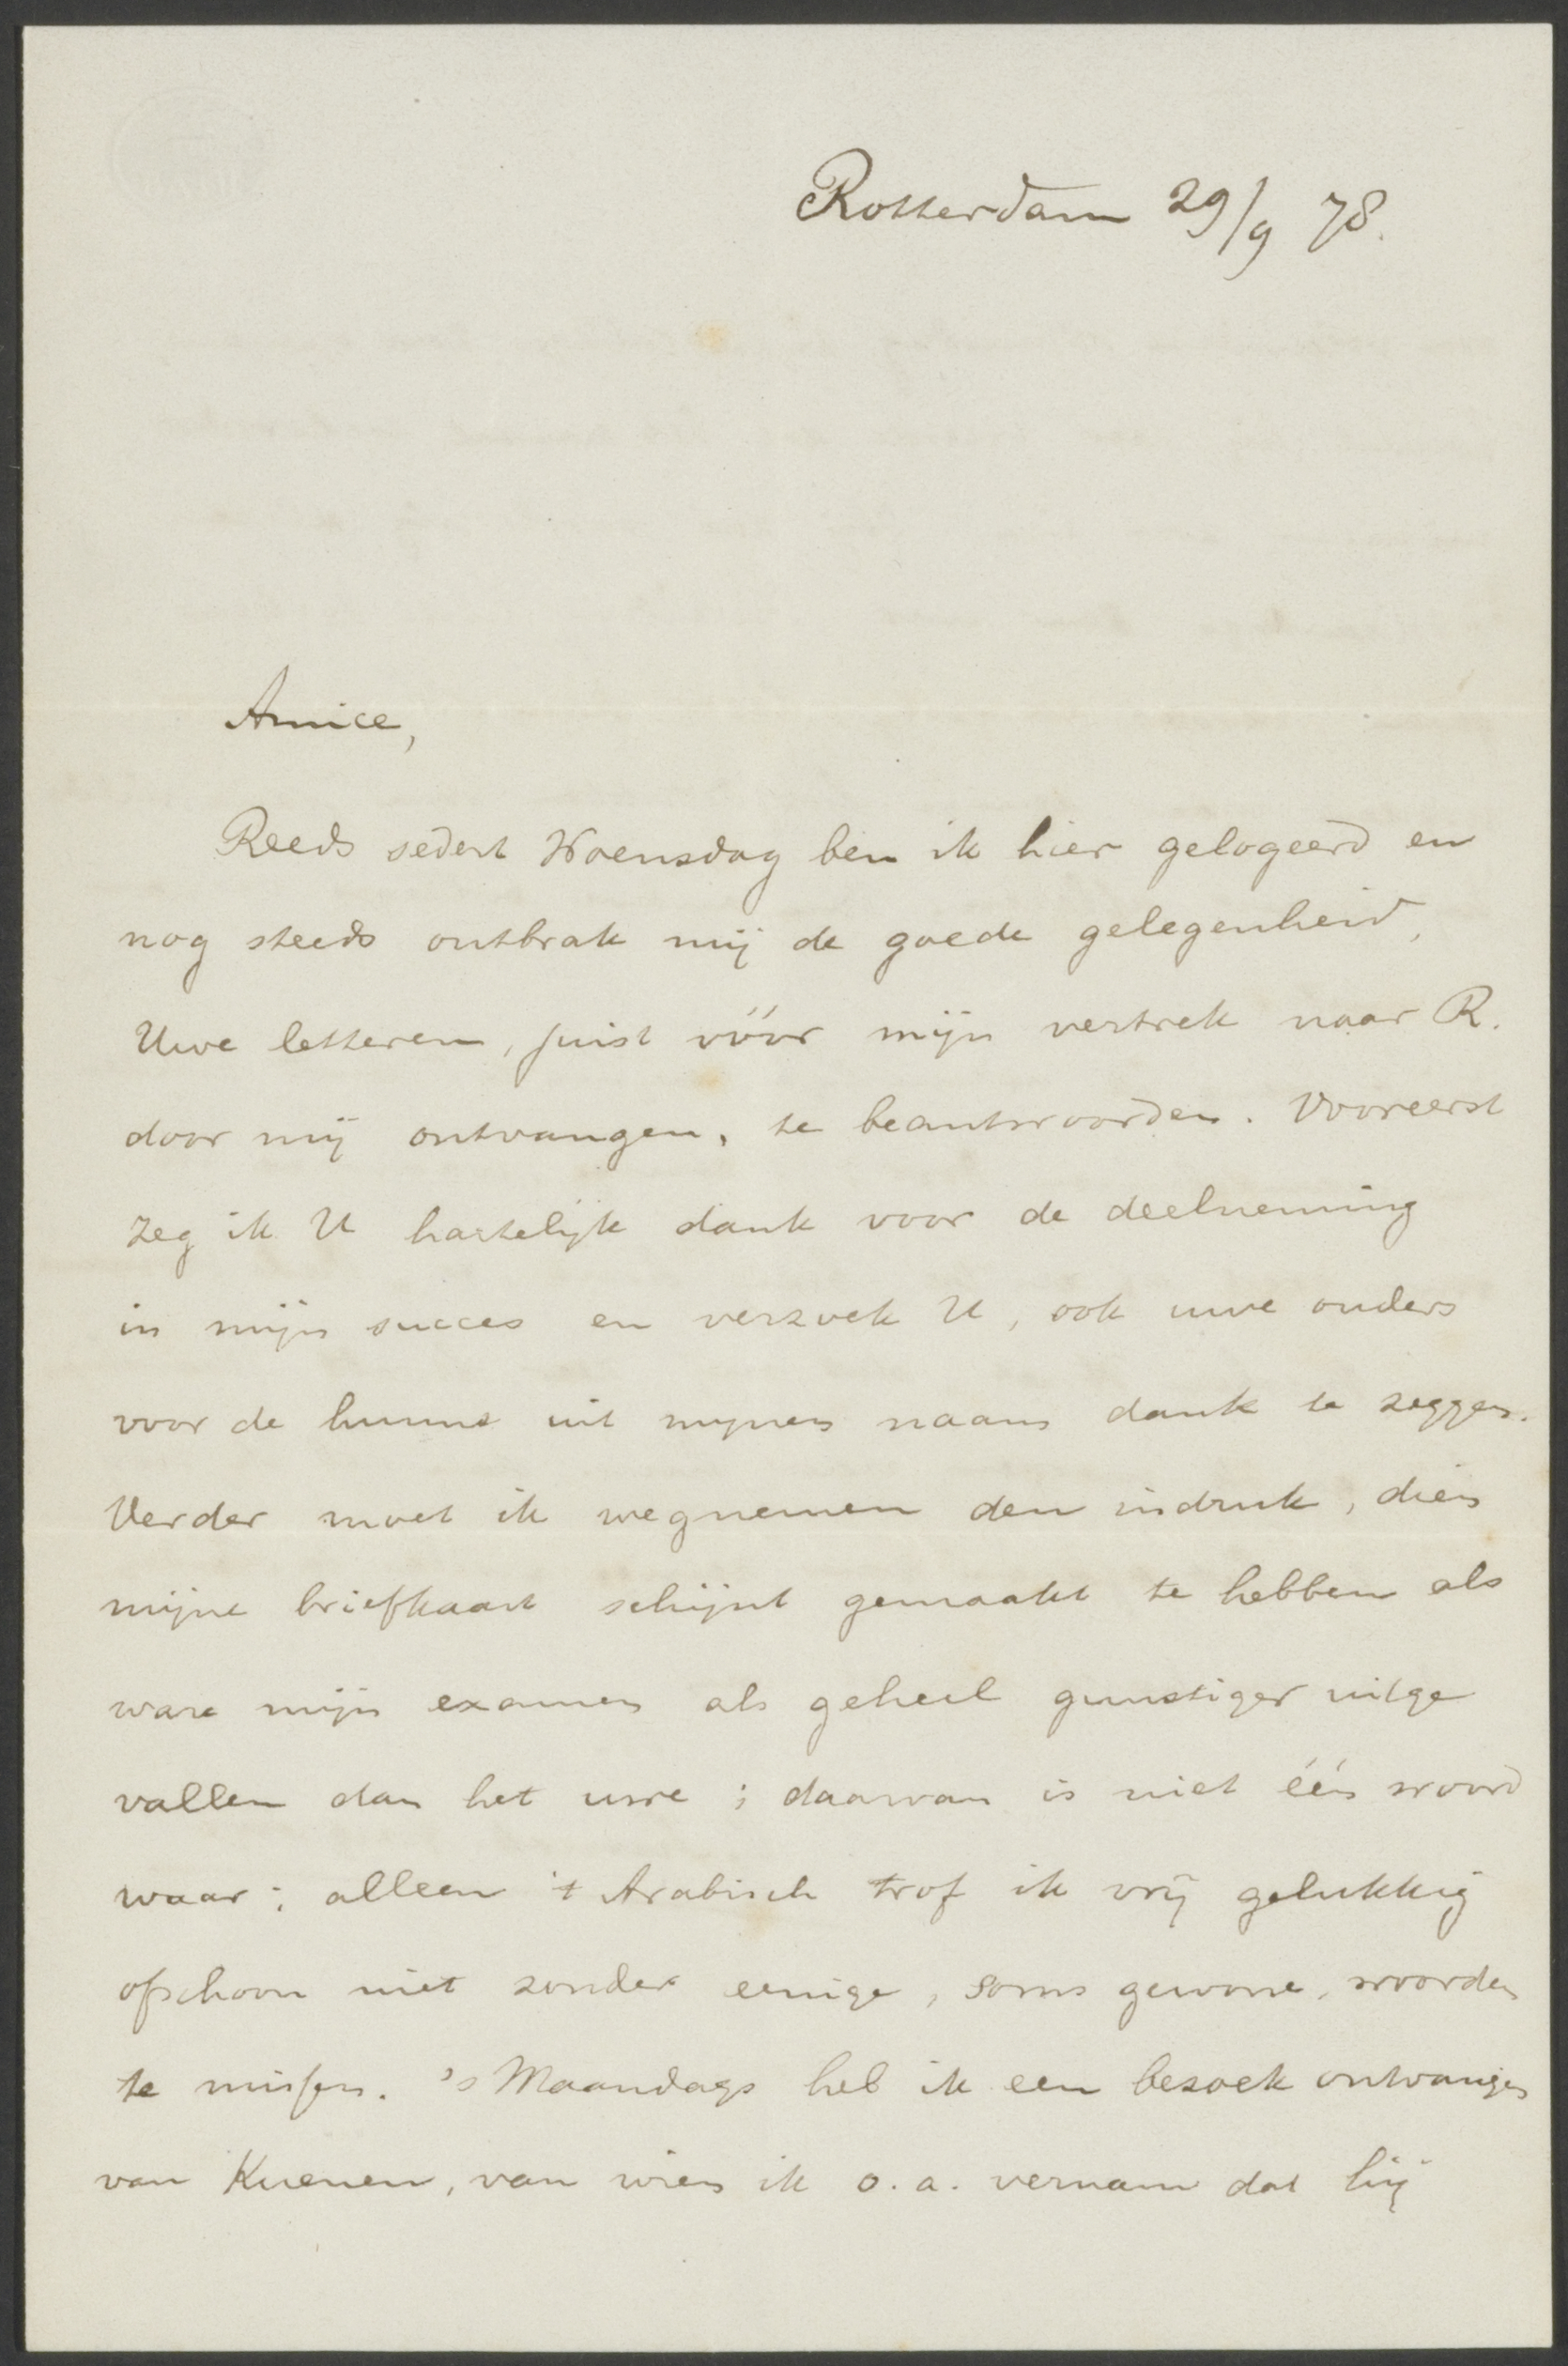 Rotterdam 29/9 78.
Amice,
Reeds sedert Woensdag ben ik hier gelogeerd en
nog steeds ontbrak mij de goede gelegenheid,
Uwe letteren, juist vóór mijn vertrek naar R.
door mij ontvangen, te beantwoorden. Vooreerst
zeg ik U hartelijk dank voor de deelneming
in mijn succes en verzoek U, ook uwe ouders
voor de hunne uit mijnen naam dank te zeggen.
Verder moet ik wegnemen den indruk, dien
mijne briefkaart schijnt gemaakt te hebben als
ware mijn examen als geheel gunstiger uitge
vallen dan het uwe; daarvan is niet één woord
waar; alleen 't Arabisch trof ik vrij gelukkig
ofschoon niet zonder eenige, soms gewone, woorden
te missen. 's Maandags heb ik een bezoek ontvangen
van Kuenen, van wien ik o.a. vernam dat hij